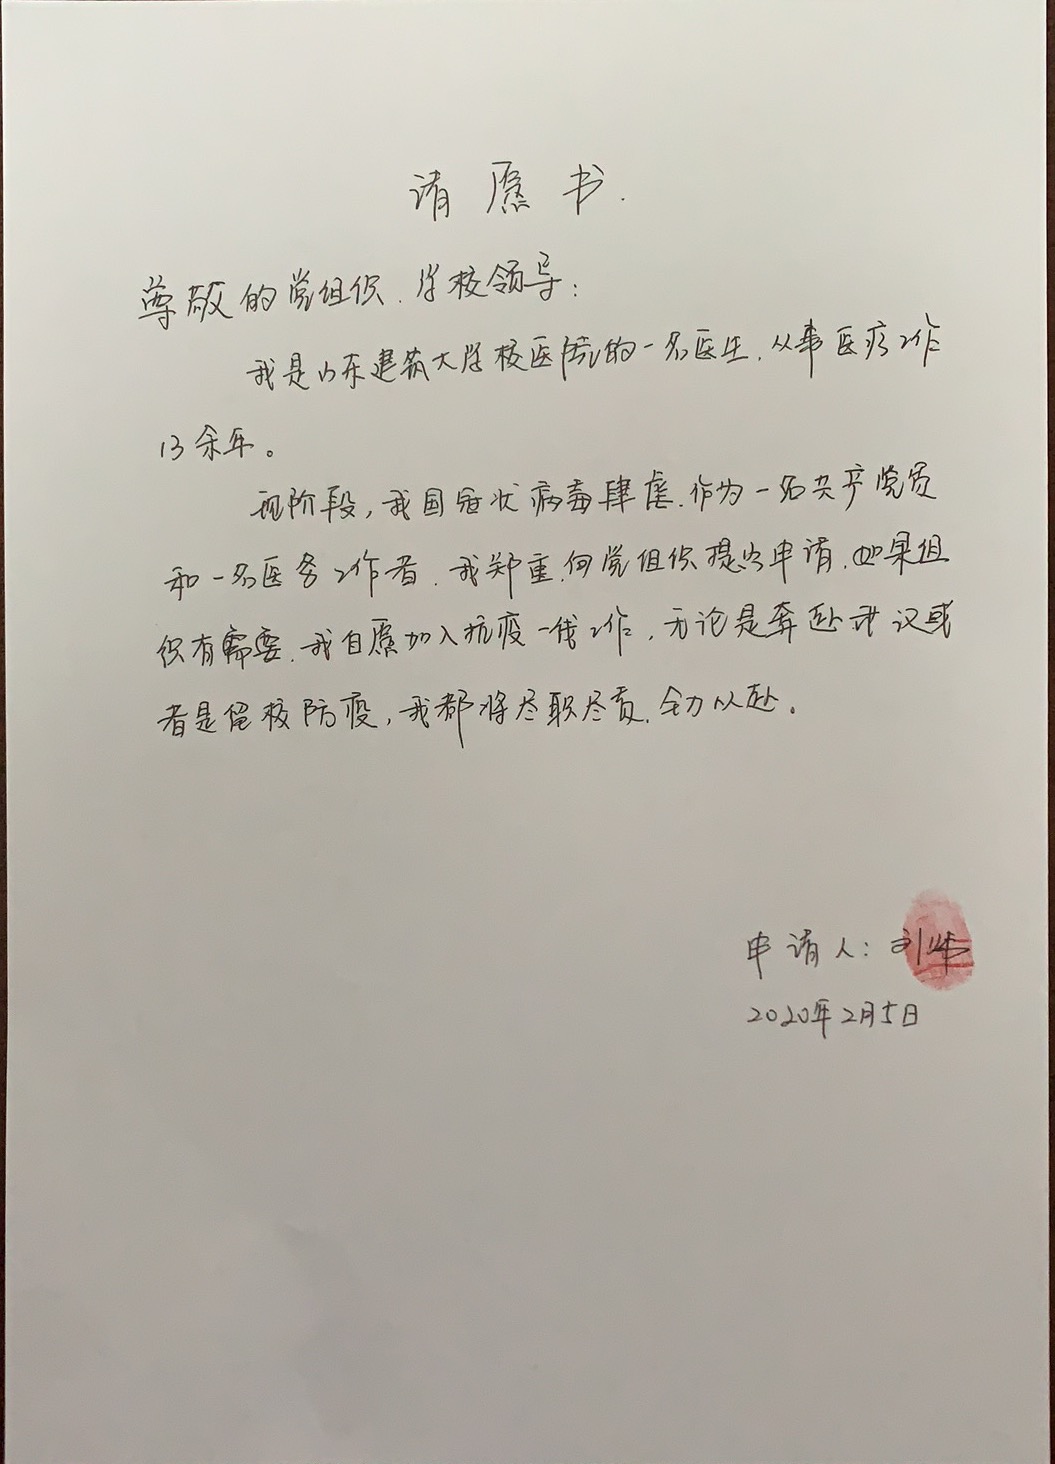 请愿书.
尊敬的党组织、学校领导：
我是山东建筑大学校医院的一名医生，从事医疗工作
13余年。
现阶段，我国冠状病毒肆虐，作为一名共产党员
和一名医务工作者，我郑重向党组织提出申请，如果组
织有需要，我自愿加入抗疫一线工作，无论是奔赴武汉或
者是留校防疫，我都将尽职尽责，全力以赴。
申请人：刘
2020年2月5日